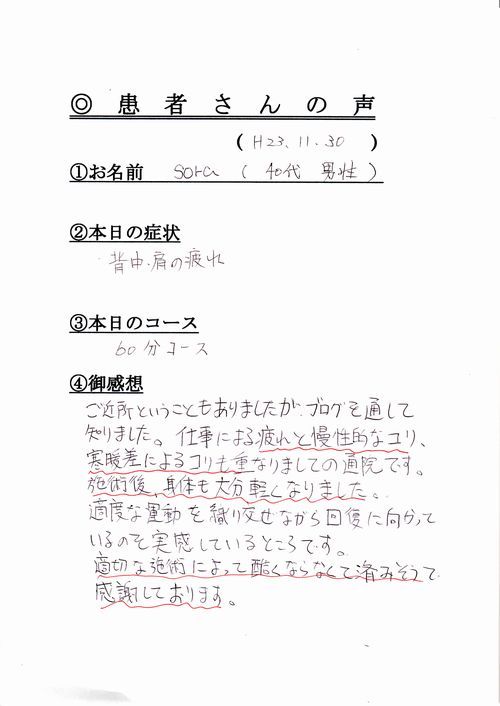 ◎患者さんの声
(H23.11.30)
①お名前 sora (40代 男性)
②本日の症状
・背中.肩の疲れ
③本日のコース
60分コース
④御感想
ご近所ということもありましたが、ブログを通して
知りました。仕事による疲れと慢性的なコリ、
寒暖差によるコリも重なりましての通院です。
施術後、身体も大分軽くなりました。
適度な運動を織り交ぜながら回復に向かって
いるのを実感しているところです。
適切な施術によって酷くならなくて済みそうで
感謝しております。